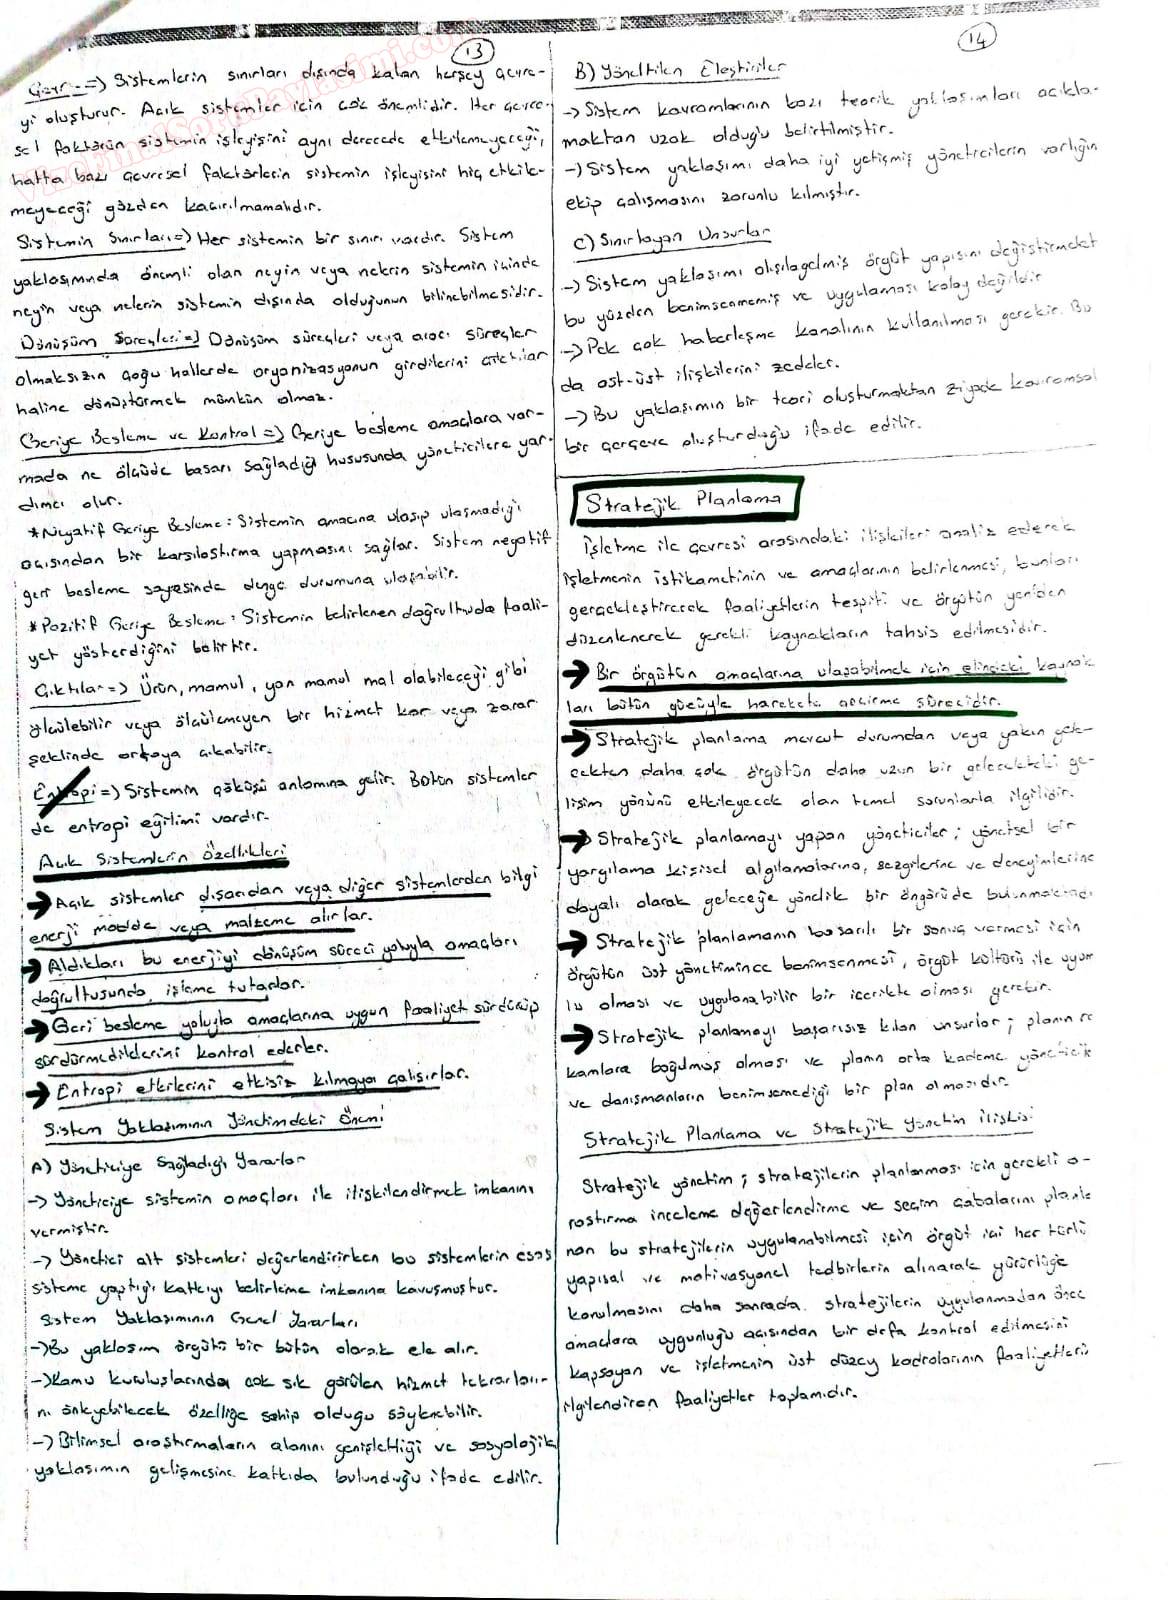 13
Çevre => Sistemlerin sınırları dışında kalan herşey çevre-
yi oluşturur. Açık sistemler için çok önemlidir. Her çevre-
sel faktörün sistemin işleyişini aynı derecede etkilemeyeceği,
hatta bazı çevresel faktörlerin sistemin işleyişini hiç etkile-
meyeceği gözden kaçırılmamalıdır.
Sistemin Sınırları => Her sistemin bir sınırı vardır. Sistem
yaklaşımında önemli olan neyin veya nelerin sistemin içinde
neyin veya nelerin sistemin dışında olduğunun bilinebilmesidir.
Dönüşüm Süreçleri => Dönüşüm süreçleri veya aracı süreçler
olmaksızın çoğu hallerde organizasyonun girdilerini çıktılar
haline dönüştürmek mümkün olmaz.
Geriye Besleme ve Kontrol => Geriye besleme amaçlara var-
mada ne ölçüde başarı sağladığı hususunda yöneticilere yar-
dımcı olur.
* Negatif Geriye Besleme: Sistemin amacına ulaşıp ulaşmadığı
açısından bir karşılaştırma yapmasını sağlar. Sistem negatif
geri besleme sayesinde denge durumuna ulaşabilir.
* Pozitif Geriye Besleme: Sistemin belirlenen doğrultuda faali-
yet gösterdiğini belirtir.
Çıktılar => Ürün, mamul, yarı mamul mal olabileceği gibi
ölçülebilir veya ölçülemeyen bir hizmet kar veya zarar
şeklinde ortaya çıkabilir.
Entropi => Sistemin çöküşü anlamına gelir. Bütün sistemler
de entropi eğilimi vardır.
Açık Sistemlerin Özellikleri
→ Açık sistemler dışarıdan veya diğer sistemlerden bilgi
enerji madde veya malzeme alırlar.
→ Aldıkları bu enerjiyi dönüşüm süreci yoluyla amaçları
doğrultusunda işleme tutarlar.
→ Geri besleme yoluyla amaçlarına uygun faaliyet sürdürüp
sürdürmediklerini kontrol ederler.
→ Entropi etkilerini etkisiz kılmaya çalışırlar.
Sistem Yaklaşımının Yönetimdeki Önemi
A) Yöneticiye Sağladığı Yararlar
-> Yöneticiye sistemin amaçları ile ilişkilendirmek imkanını
vermiştir.
-> Yönetici alt sistemleri değerlendirirken bu sistemlerin esas
sisteme yaptığı katkıyı belirleme imkanına kavuşmuştur.
Sistem Yaklaşımının Genel Yararları
-> Bu yaklaşım örgütü bir bütün olarak ele alır.
-> Kamu kuruluşlarında çok sık görülen hizmet tekrarları-
nı önleyebilecek özelliğe sahip olduğu söylenebilir.
-> Bilimsel araştırmaların alanını genişlettiği ve sosyolojik
yaklaşımın gelişmesine katkıda bulunduğu ifade edilir.
14
B) Yöneltilen Eleştiriler
-> Sistem kavramlarının bazı teorik yaklaşımları açıkla-
maktan uzak olduğu belirtilmiştir.
-> Sistem yaklaşımı daha iyi yetişmiş yöneticilerin varlığın
ekip çalışmasını zorunlu kılmıştır.
C) Sınırlayan Unsurlar
-> Sistem yaklaşımı alışılagelmiş örgüt yapısını değiştirmekt
bu yüzden benimsenmemiş ve uygulaması kolay değildir
-> Pek çok haberleşme kanalının kullanılması gerekir. Bu
da ast-üst ilişkilerini zedeler.
-> Bu yaklaşımın bir teori oluşturmaktan ziyade kavramsal
bir çerçeve oluşturduğu ifade edilir.
Stratejik Planlama
İşletme ile çevresi arasındaki ilişkileri analiz ederek
işletmenin istikametinin ve amaçlarının belirlenmesi, bunları
gerçekleştirecek faaliyetlerin tespiti ve örgütün yeniden
düzenlenerek gerekli kaynakların tahsis edilmesidir.
→ Bir örgütün amaçlarına ulaşabilmek için elindeki kaynak
ları bütün gücüyle harekete geçirme sürecidir.
→ Stratejik planlama mevcut durumdan veya yakın gel-
ecekten daha çok örgütün daha uzun bir gelecekteki ge-
lişim yönünü etkileyecek olan temel sorunlarla ilgilidir.
→ Stratejik planlamayı yapan yöneticiler; yönetsel bir
yargılama kişisel algılamalarına, sezgilerine ve deneyimlerine
dayalı olarak geleceğe yönelik bir öngörüde bulunmaktadı
→ Stratejik planlamanın başarılı bir sonuç vermesi için
örgütün üst yönetimince benimsenmesi, örgüt kültürü ile uyum
lu olması ve uygulanabilir bir içerikte olması gerekir.
→ Stratejik planlamayı başarısız kılan unsurlar; planın ra
kamlara boğulmuş olması ve planın orta kademe yöneticik
ve danışmanların benimsemediği bir plan olmasıdır.
Stratejik Planlama ve Stratejik Yönetim İlişkisi
Stratejik yönetim; stratejilerin planlanması için gerekli a-
raştırma inceleme değerlendirme ve seçim çabalarını planla
nan bu stratejilerin uygulanabilmesi için örgüt içi her türlü
yapısal ve motivasyonel tedbirlerin alınarak yürürlüğe
konulmasını daha sonrada stratejilerin uygulanmadan önce
amaçlara uygunluğu açısından bir defa kontrol edilmesini
kapsayan ve işletmenin üst düzey kadrolarının faaliyetleri
ilgilendiren faaliyetler toplamıdır.
VizeFinalSoruPaylasimi.com